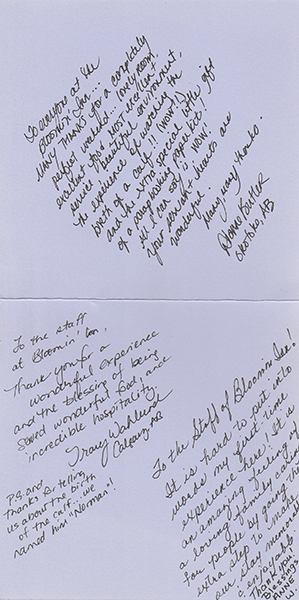 To everyone at the
Bloomin' Inn...
Many thanks for a completely
perfect weekend... lovely room,
excellent food, most excellent
service & beautiful environment,
the experience of watching the
birth of a calf!! (WOW!)
and the extra special little gift
of a papermaking paper kit!
All I can say is, "WOW!"
Your vibrant hearts are
wonderful.
Many many thanks.
Dianne Butler
Okotoks, AB
To the staff
at Bloomin' Inn,
Thank you for a
wonderful experience
and the blessing of being
served wonderful food, and
incredible hospitality!
Tracy
Calgary, AB
P.S. and
thanks for telling
us about the birth
of the calf... we
named him "Norman"!
To the Staff of Bloomin Inn!
It is hard to put into
words my first-time
experience here! It is
an amazing feeling of
a loving, family caring
for people by going the
extra step to make
our stay memorable
& enjoyable!
Thank you!
Blessings
Anne
W.